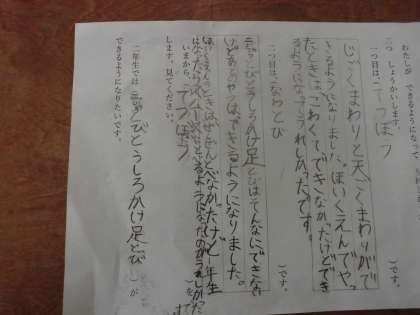 わたしが できるようになって
二つ しょうかいします。
一つ目は、てつぼう
じごくまわりと天ごくまわりがで
きるようになりました。ほいくえんでやっ
たときはこわくてできなかったけどでき
るようになってうれしかったです。
)です。
二つ目は、なわとび
)です。
二じゅうとびとうしろかけ足とびはそんなにできない
けどあやとびはできるようになりました。
ほいくえんのときはぜんぜんとべなかったけど一年生
になったら
できるようになったのがうれしかった
いまから、てつぼう
)を
します。見てください。
二年生では二じゅうとびとうしろかけ足とび
)が
できるようになりたいです。